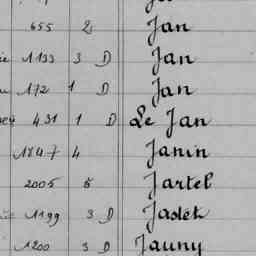 655 2 Jan
1133 3 D Jan
172 1 D Jan
431 1 D Le Jan
1847 4 Janin
2005 5 Jartel
1199 3 D Jasdek
1200 3 D Jauny